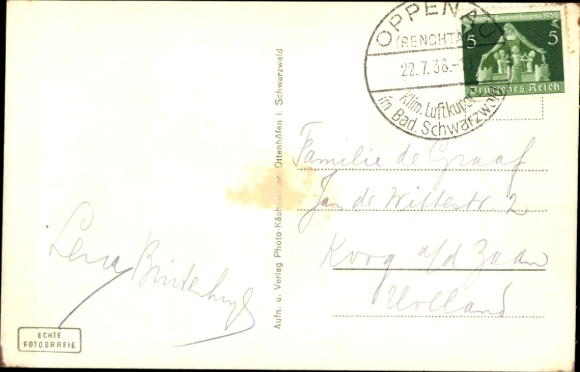 OPPENAU
(RENCHTAL)
22.7.36.-
Klim. Luftkurort
im Bad. Schwarzwald
1936
5 5
Deutsches Reich
Familie de Graaf
Jan de Wittestr 2
Koog a/d Zaan
Holland
Aufn. u. Verlag Photo-Käshammer, Ottenhöfen i. Schwarzwald
Lena
ECHTE
FOTOGRAFIE